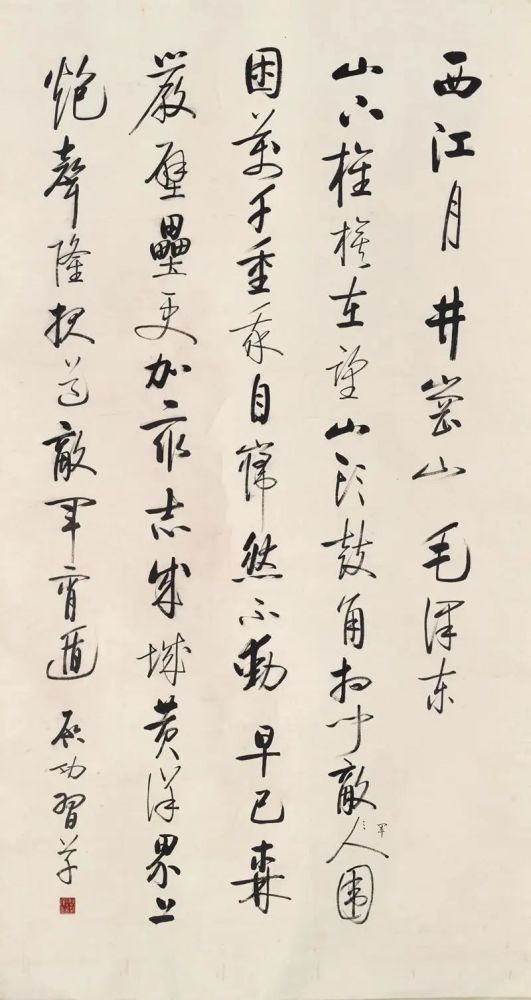 西江月 井崗山 毛澤东
山下旌旗在望山头鼓角相闻敵人軍圍
困萬千重我自巋然不動 早已森
嚴壁壘更加衆志成城黄洋界上
炮聲隆报道敵軍宵遁 啟功習草